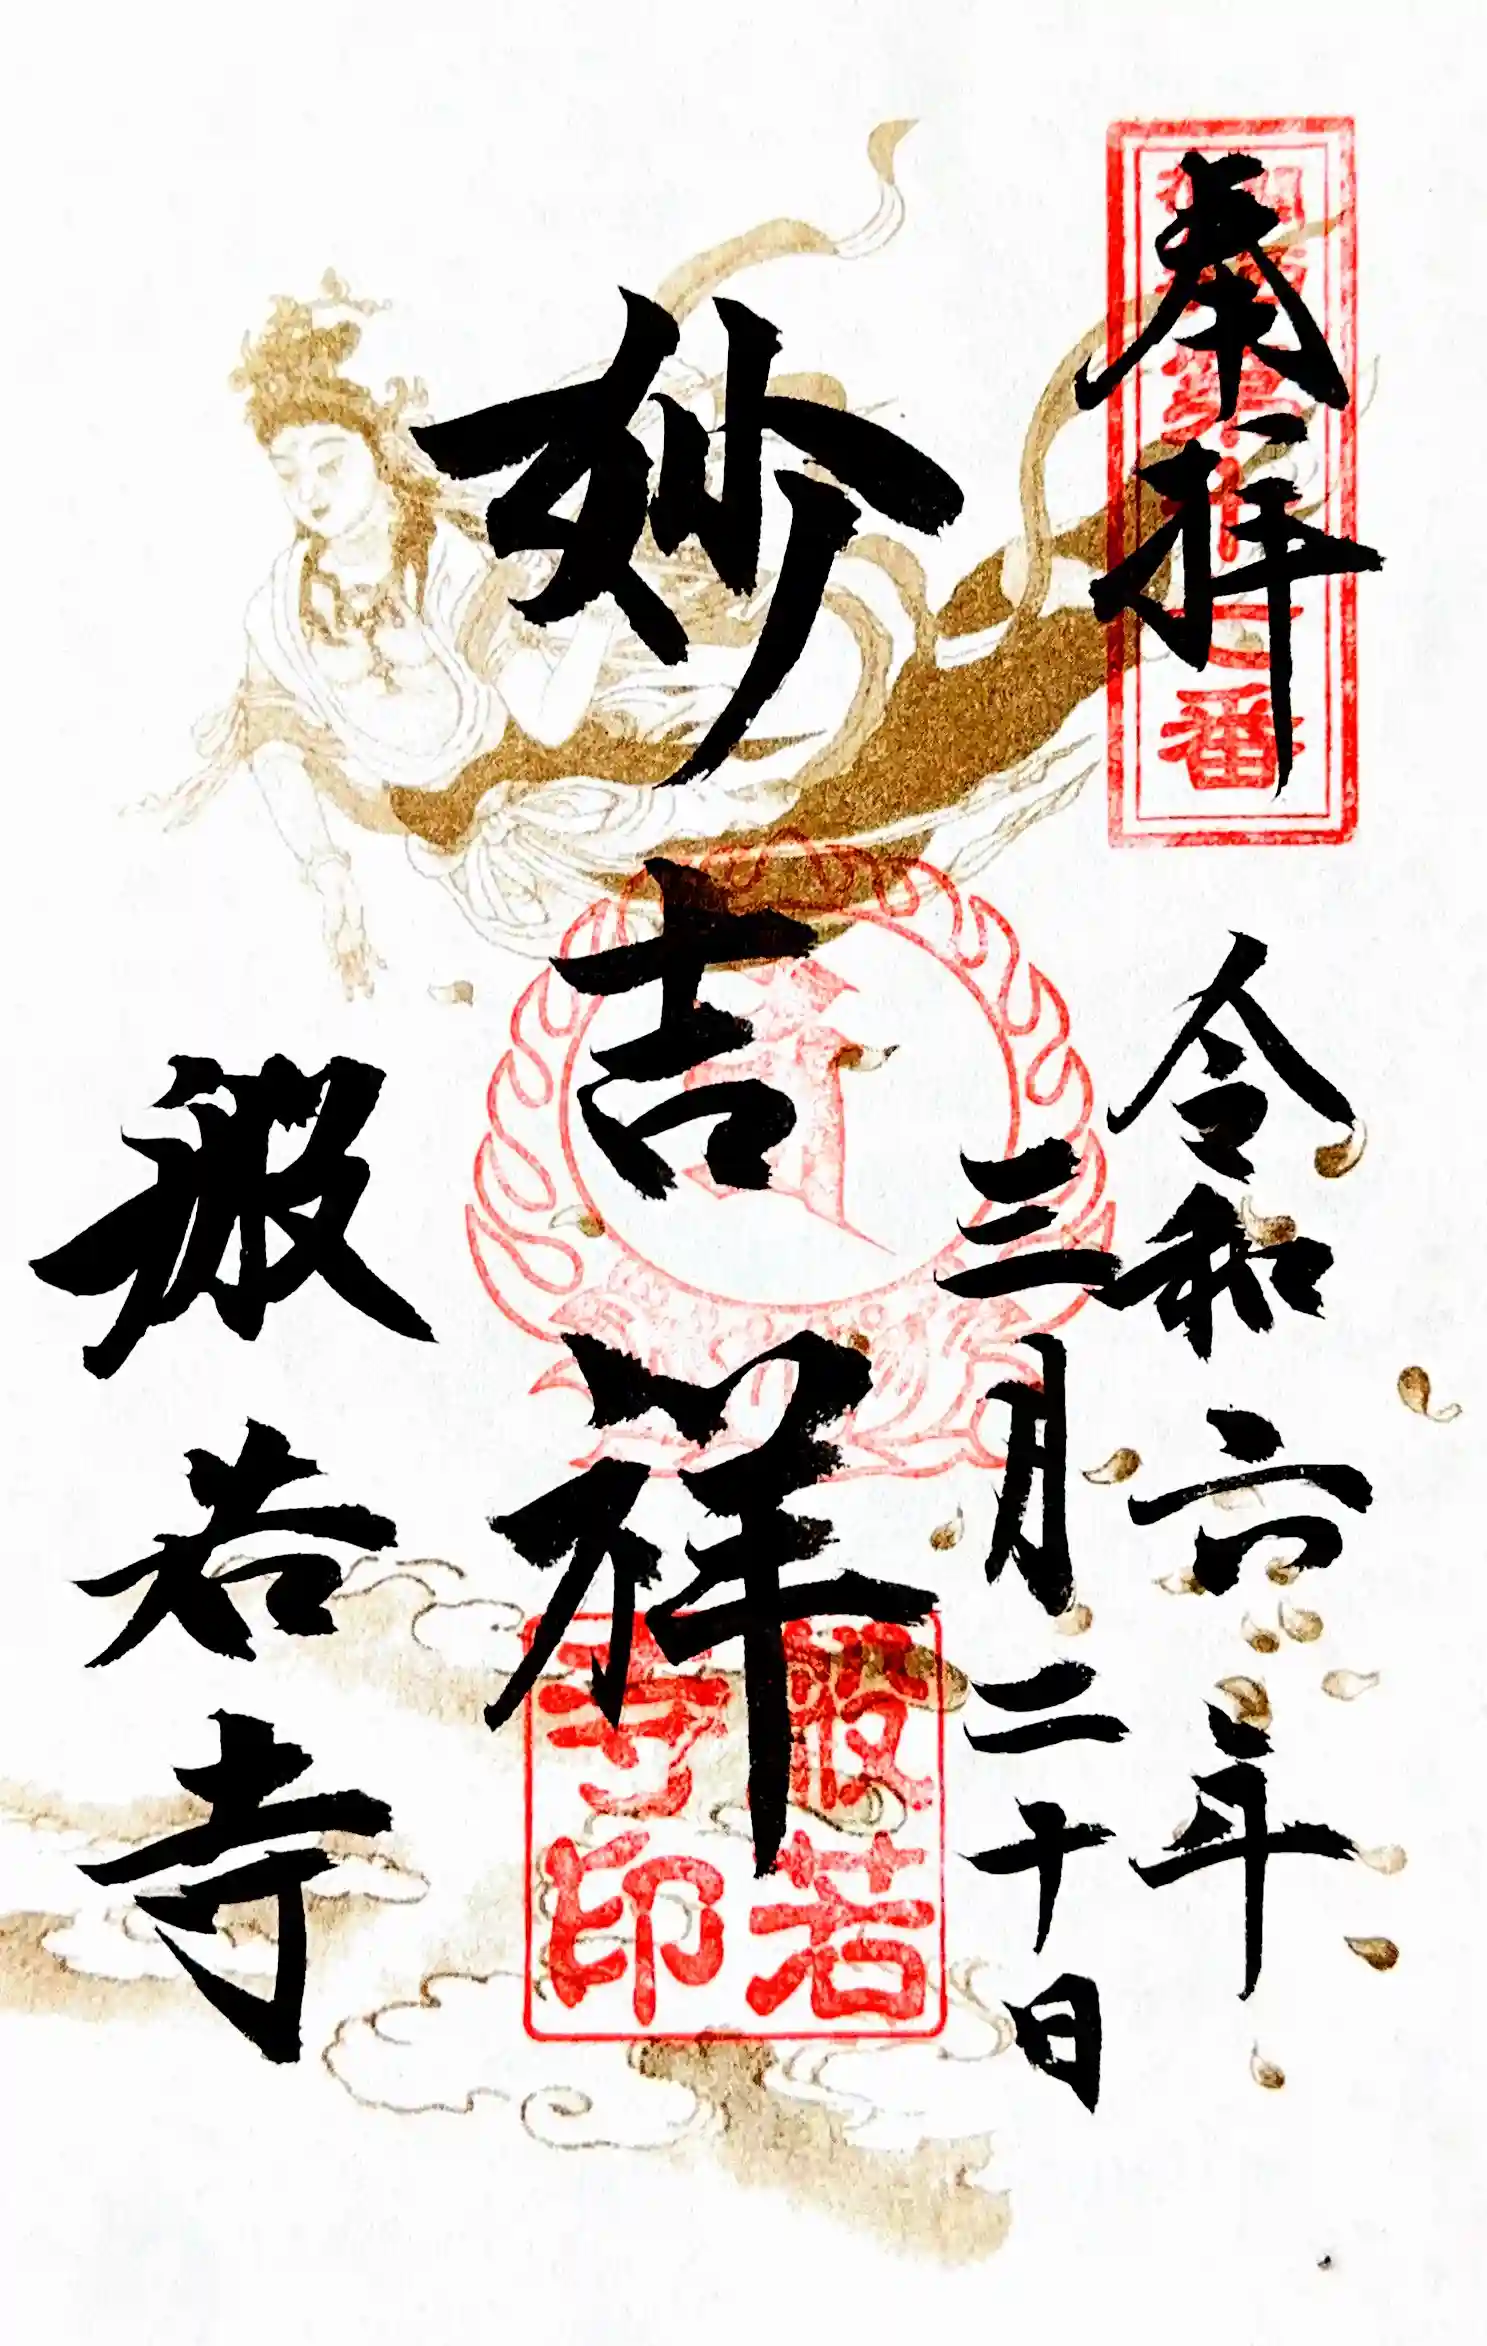 奉拝
令和六年
三月二十日
妙吉祥
般若寺
般若
寺印